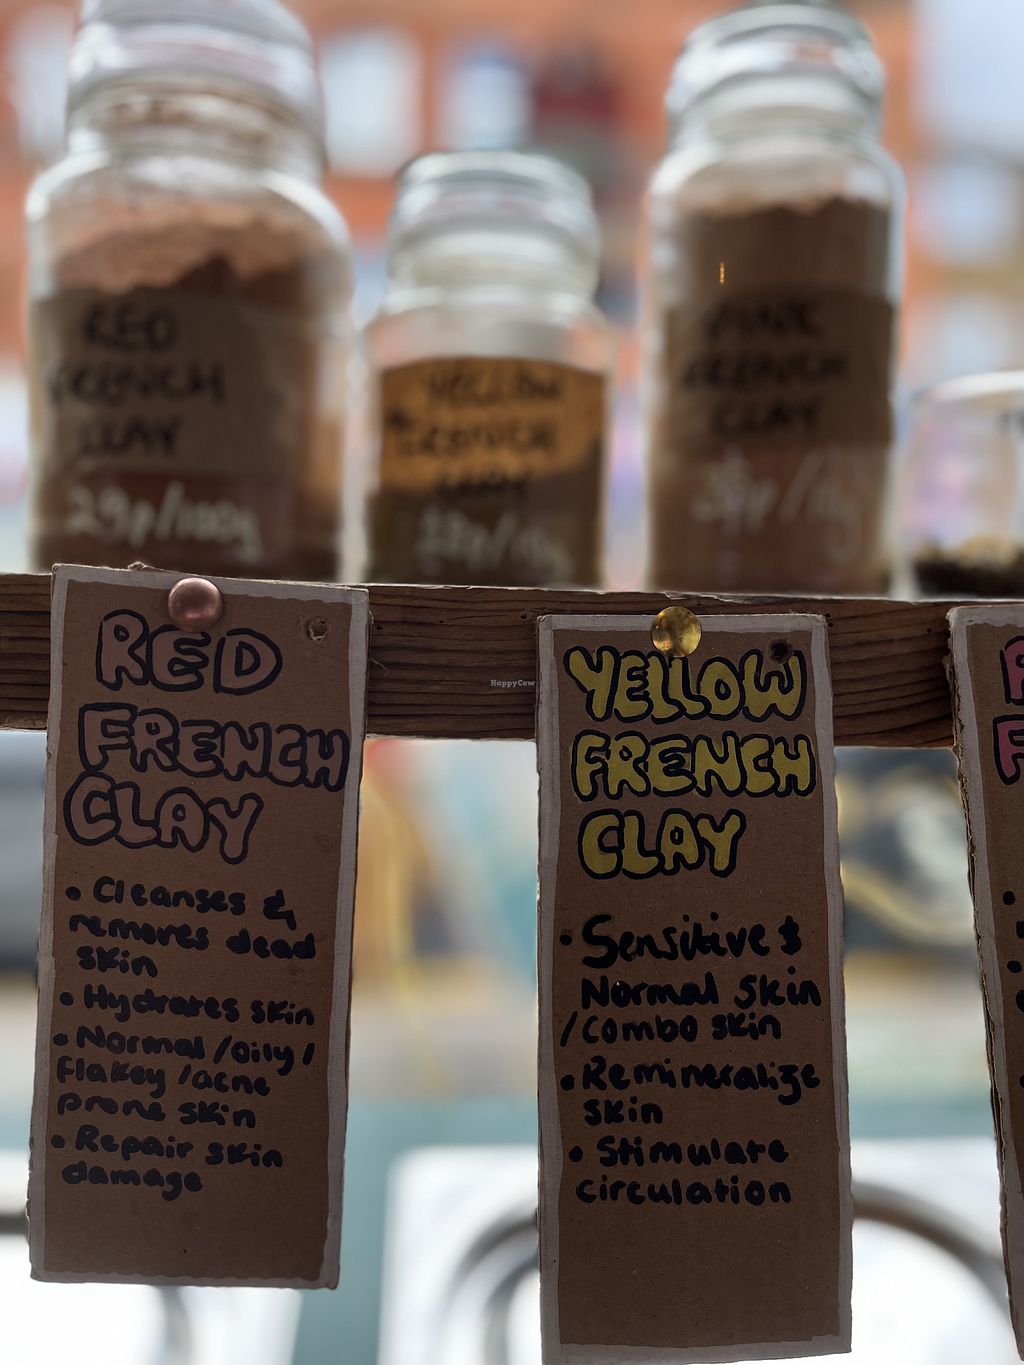 RED
FRENCH
CLAY
29p/100g
YELLOW
FRENCH
CLAY
PINK
FRENCH
CLAY
RED
FRENCH
CLAY
• Cleanses &
removes dead
skin
• Hydrates skin
• Normal/oily/
flakey/acne
prone skin
• Repair skin
damage
HappyCow
YELLOW
FRENCH
CLAY
• Sensitive &
Normal Skin
/combo skin
• Remineralize
skin
• Stimulate
circulation